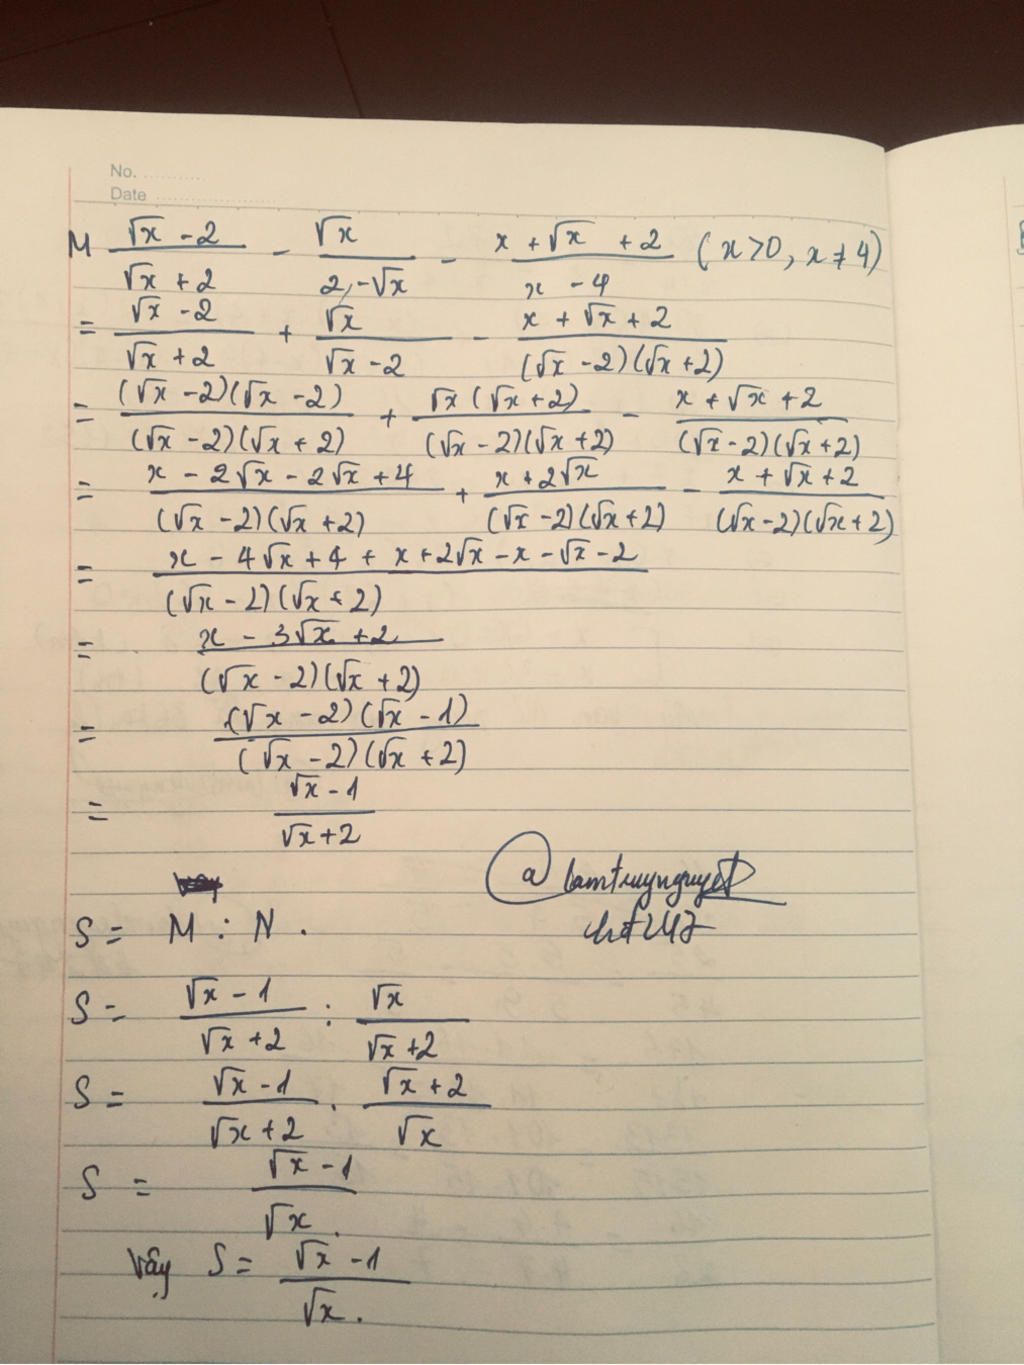 No. ...........
Date .....................
M (√x - 2)/(√x + 2) - √x/(2 - √x) - (x + √x + 2)/(x - 4) (x > 0, x ≠ 4)
= (√x - 2)/(√x + 2) + √x/(√x - 2) - (x + √x + 2)/((√x - 2)(√x + 2))
= ((√x - 2)(√x - 2))/((√x - 2)(√x + 2)) + (√x(√x + 2))/((√x - 2)(√x + 2)) - (x + √x + 2)/((√x - 2)(√x + 2))
= (x - 2√x - 2√x + 4)/((√x - 2)(√x + 2)) + (x + 2√x)/((√x - 2)(√x + 2)) - (x + √x + 2)/((√x - 2)(√x + 2))
= (x - 4√x + 4 + x + 2√x - x - √x - 2)/((√x - 2)(√x + 2))
= (x - 3√x + 2)/((√x - 2)(√x + 2))
= ((√x - 2)(√x - 1))/((√x - 2)(√x + 2))
= (√x - 1)/(√x + 2)
@lamtruynguyet
S = M : N .
S = (√x - 1)/(√x + 2) : √x/(√x + 2)
S = (√x - 1)/(√x + 2) . (√x + 2)/√x
S = (√x - 1)/√x .
Vậy S = (√x - 1)/√x .